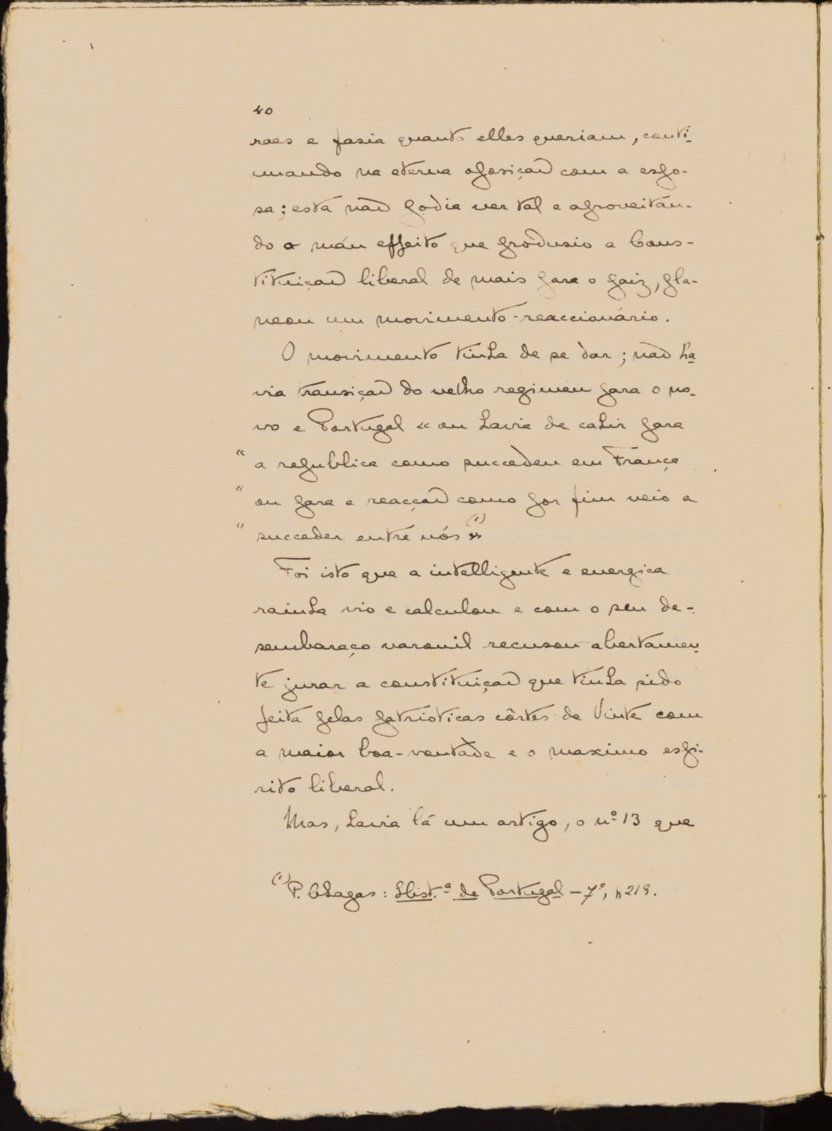 40
raes e fasia quanto elles queriam, conti-
nuando na eterna oposiçaõ com a espo-
sa; esta naõ podia ver tal e aproveitán-
do o máu effeito que produsio a Cons-
tituiçaõ liberal de mais para o paiz, pla-
neou um movimento reaccionário.
O movimento tinha de se dar; naõ ha
via transiçaõ do velho regimen para o no-
vo e Portugal « ou havia de cahir para
" a republica como succedeu em França
" ou para a reacçaõ como por fim veio a
" succeder entre nós » (1)
Foi isto que a intelligente e energica
rainha vio e calculou e com o seu de-
sembaraço varonil recusou abertamen-
te jurar a constituiçaõ que tinha sido
feita pelas patrioticas côrtes de Vinte com
a maior boa-vontade e o maximo espi-
rito liberal.
Mas, havia lá um artigo, o nº 13 que
(1) P. Chagas: Hist.ª de Portugal – 7º, p 219.